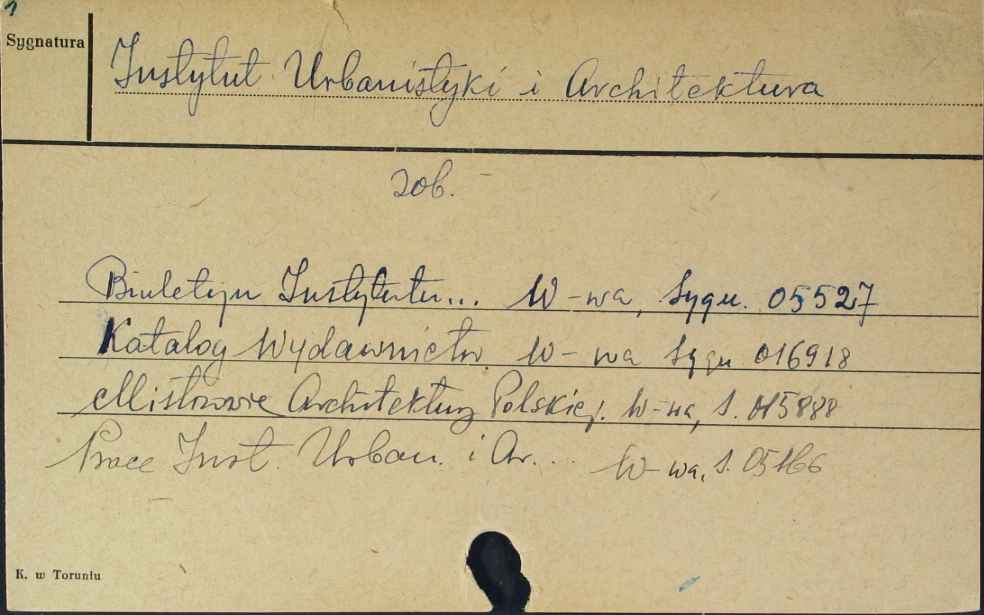 1
Sygnatura
Instytut Urbanistyki i Architektura
zob.
Biuletyn Instytutu... W-wa, Sygn. 05527
Katalog Wydawnictw W-wa Sygn 016918
Mistrzowie Architektury Polskiej. W-wa, S. 015888
Prace Inst. Urban. i Ar... W-wa, S.
K. w Toruniu